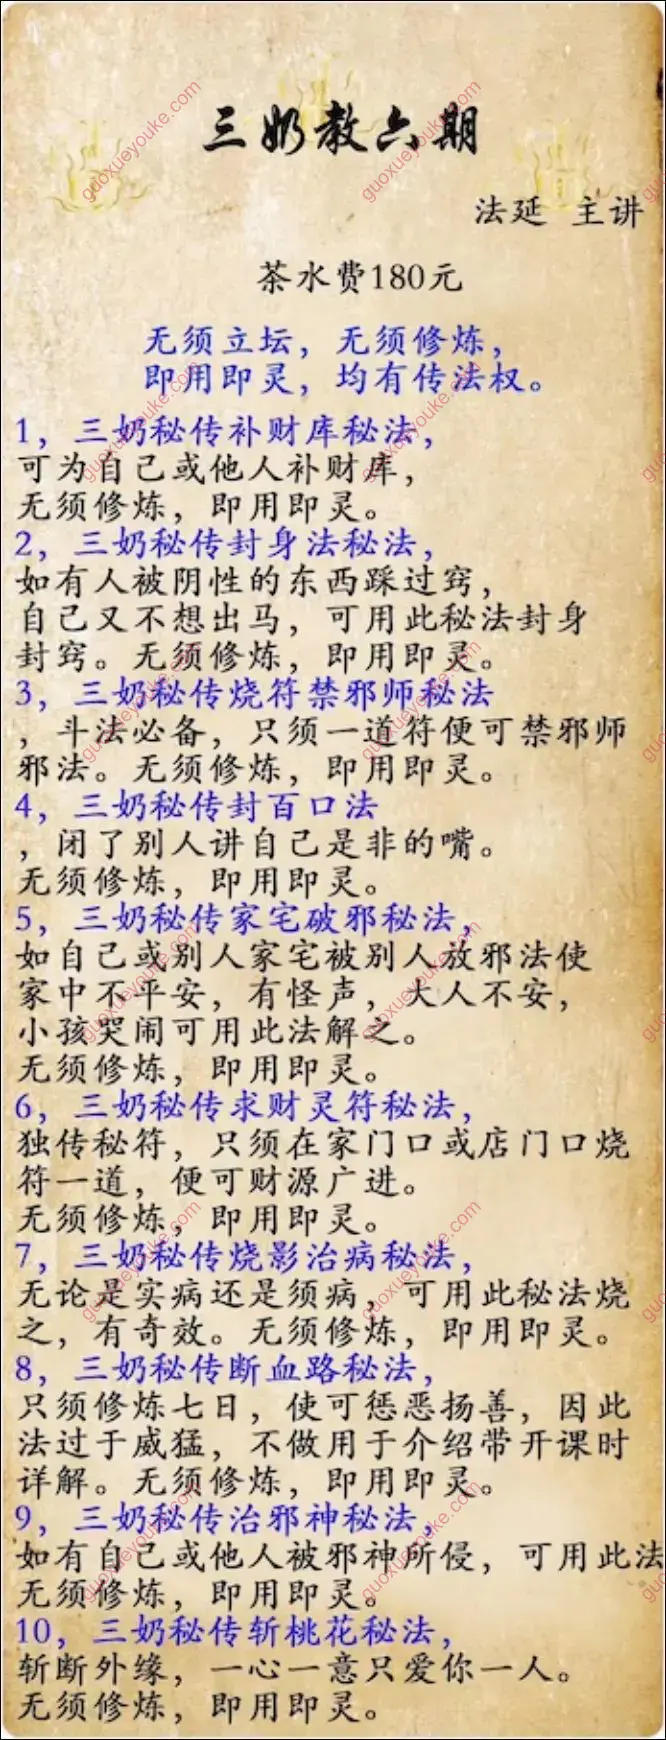 三奶教六期
法延 主讲
茶水费180元
无须立坛，无须修炼，
即用即灵，均有传法权。
1，三奶秘传补财库秘法，
可为自己或他人补财库，
无须修炼，即用即灵。
2，三奶秘传封身法秘法，
如有人被阴性的东西踩过窍，
自己又不想出马，可用此秘法封身
封窍。无须修炼，即用即灵。
3，三奶秘传烧符禁邪师秘法
，斗法必备，只须一道符便可禁邪师
邪法。无须修炼，即用即灵。
4，三奶秘传封百口法
，闭了别人讲自己是非的嘴。
无须修炼，即用即灵。
5，三奶秘传家宅破邪秘法，
如自己或别人家宅被别人放邪法使
家中不平安，有怪声，大人不安，
小孩哭闹可用此法解之。
无须修炼，即用即灵。
6，三奶秘传求财灵符秘法，
独传秘符，只须在家门口或店门口烧
符一道，便可财源广进。
无须修炼，即用即灵。
7，三奶秘传烧影治病秘法，
无论是实病还是须病，可用此秘法烧
之，有奇效。无须修炼，即用即灵。
8，三奶秘传断血路秘法，
只须修炼七日，使可惩恶扬善，因此
法过于威猛，不做用于介绍带开课时
详解。无须修炼，即用即灵。
9，三奶秘传治邪神秘法，
如有自己或他人被邪神所侵，可用此法
无须修炼，即用即灵。
10，三奶秘传斩桃花秘法，
斩断外缘，一心一意只爱你一人。
无须修炼，即用即灵。
guoxueyouke.com